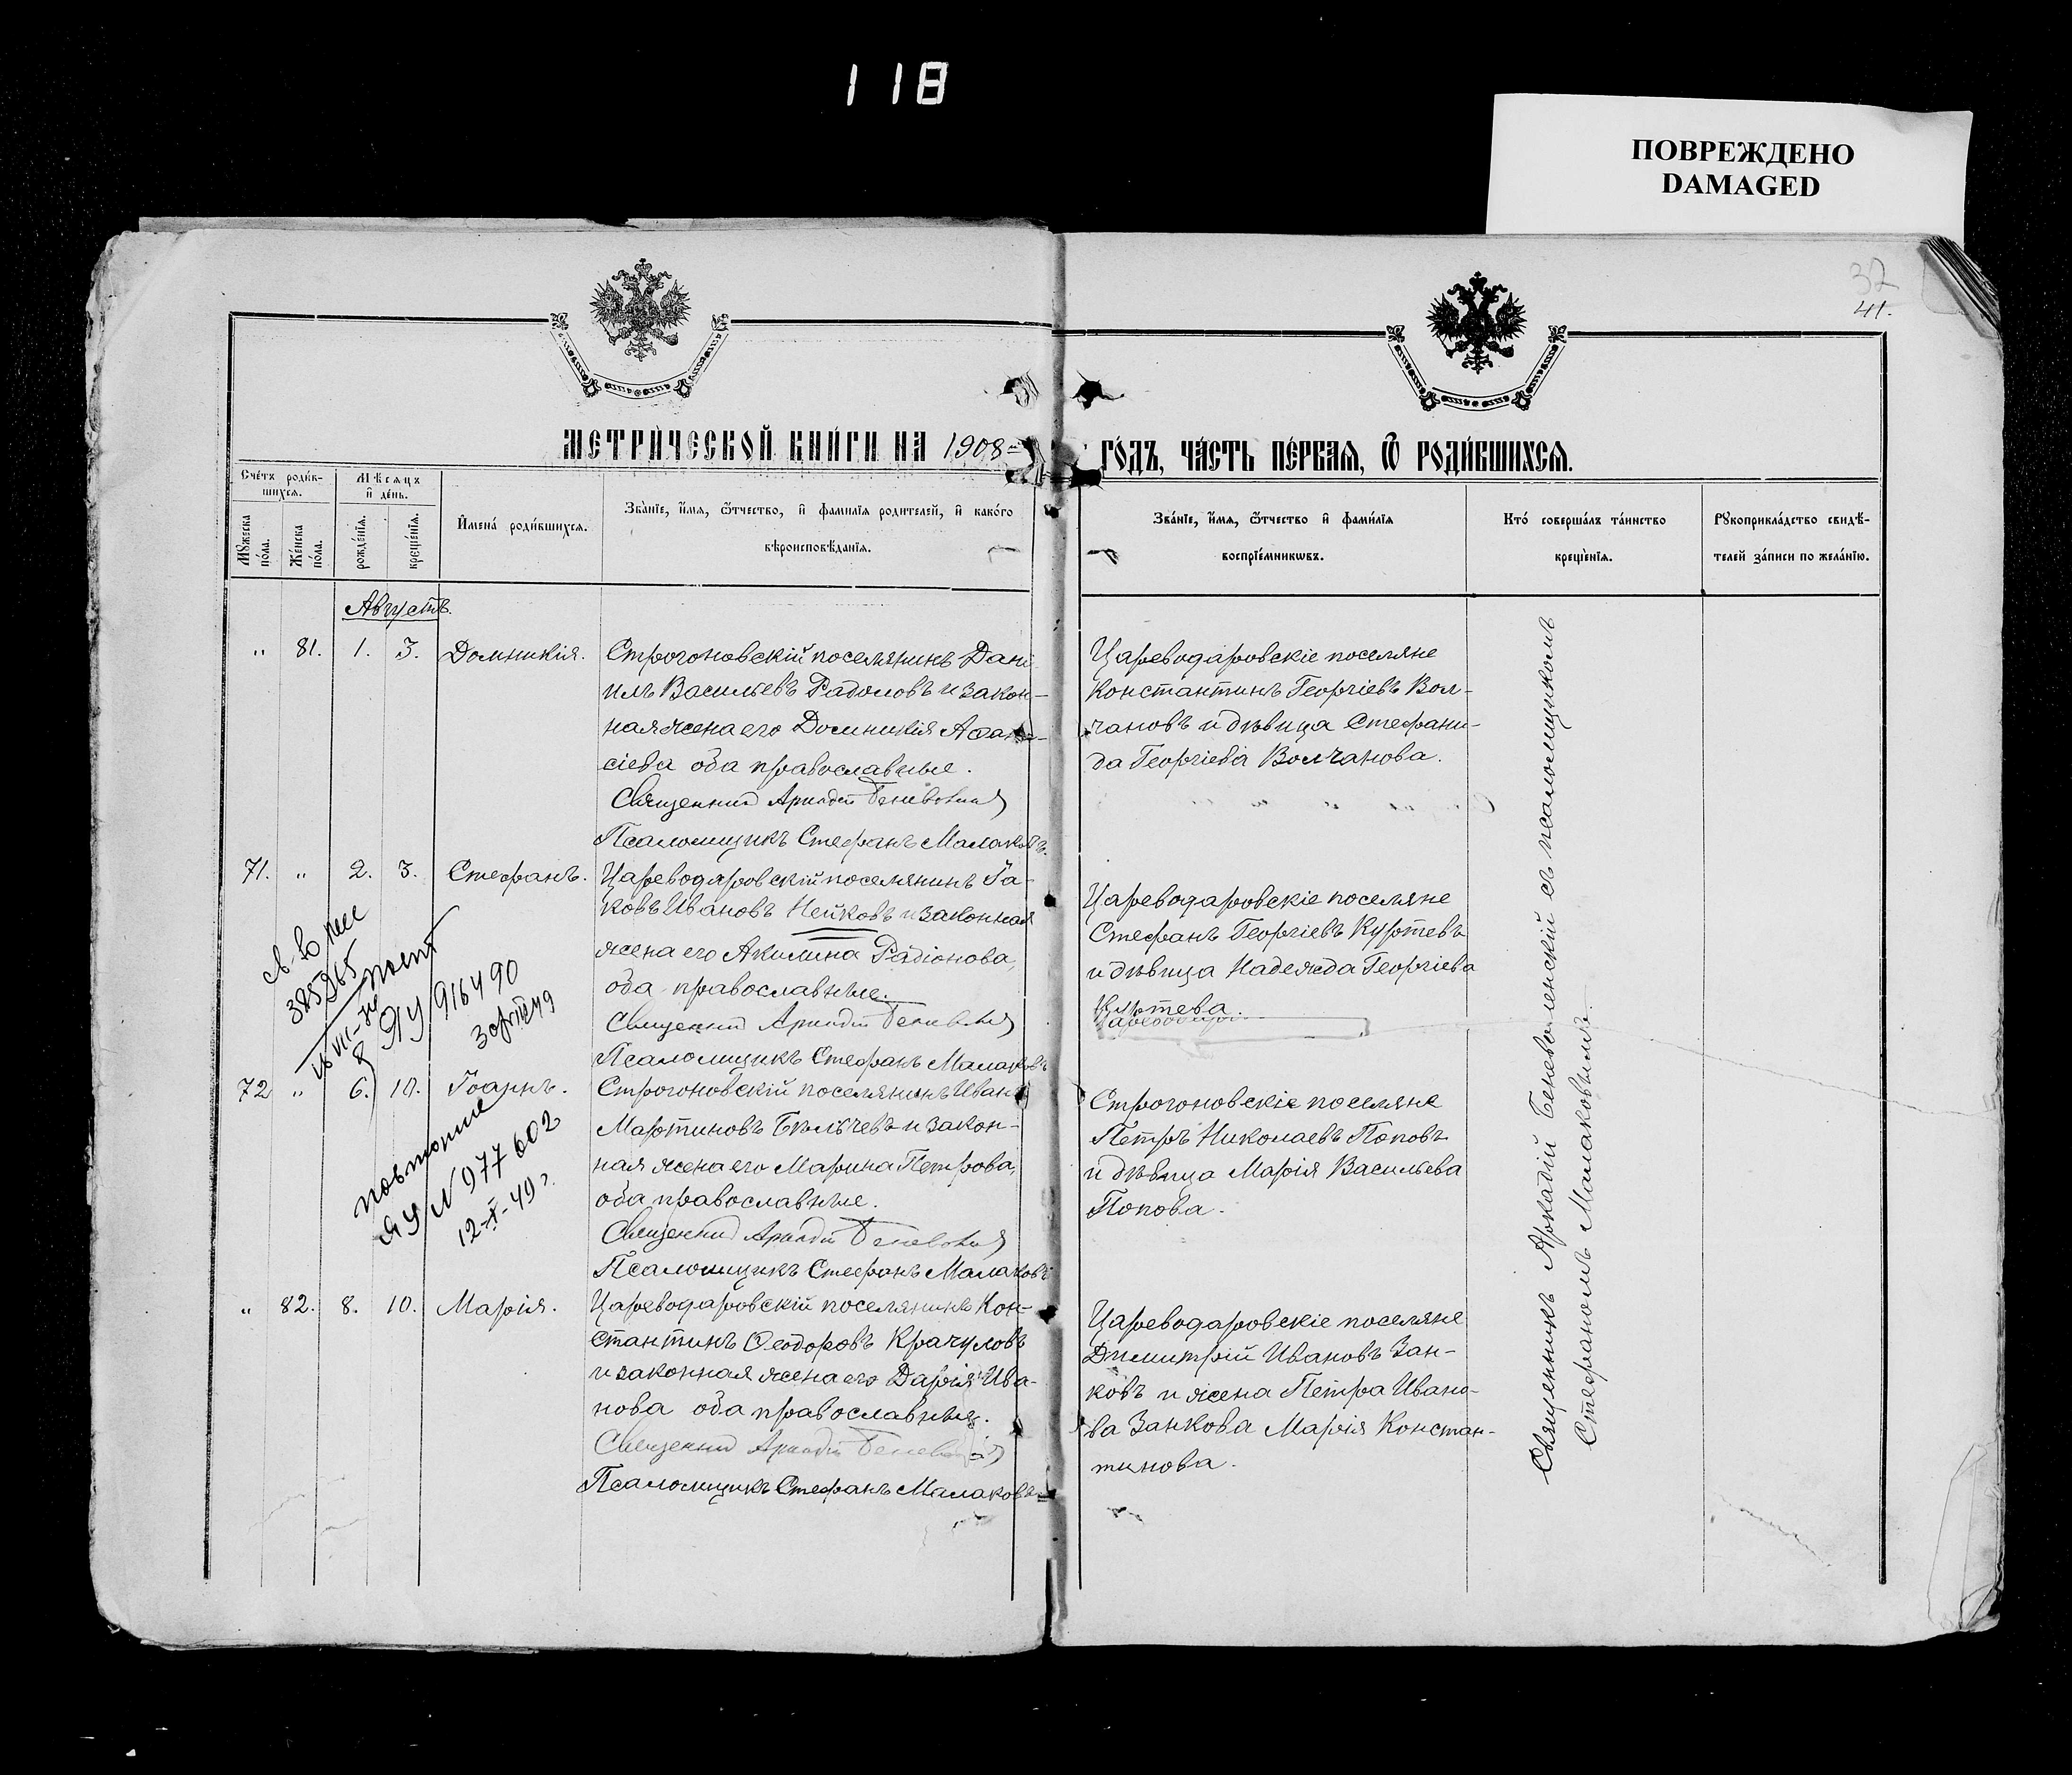 118
ПОВРЕЖДЕНО
DAMAGED
32
41.
МЕТРИ́ЧЕСКОЙ КНИ́ГИ НА 1908
ГО́ДЪ, ЧА́СТЬ ПЕ́РВАѦ, Ѿ РОДИ́ВШИХСѦ.
Сче́тъ роди́в-
шихсѧ.
Мѣсѧцъ
и҆ де́нь.
Мꙋ́жеска
по́ла.
Же́нска
по́ла.
рожде́нїѧ.
креще́нїѧ.
И҆мена̀ роди́вшихсѧ.
Зва́нїе, и҆́мѧ, ѻ҆́тчество, и҆ фами́лїѧ родителей, и҆ како́го
вѣроисповѣ́данїѧ.
Зва́нїе, и҆́мѧ, ѻ҆́тчество и҆ фами́лїѧ
воспрїе́мникѡвъ.
Кто́ соверша́лъ та́инство
креще́нїѧ.
Рꙋкоприкла́дство свидѣ́-
телей за́писи по жела́нїю.
Августъ.
" 81. 1. 3. Домникія.
Строгоновскій поселянинъ Дані
илъ Васильевъ Радоловъ и закон-
ная жена его Домникія Аѳана-
сіева оба православные.
Священник Аркадій Беневоленскій
Псаломщикъ Стефанъ Малаковъ.
Цареводаровскіе поселяне
Константинъ Георгіевъ Вол-
чановъ и дѣвица Стефани-
да Георгіева Волчанова.
71. " 2. 3. Стефанъ.
Цареводаровскій поселянинъ Іа-
ковъ Ивановъ Нейковъ и законная
жена его Акилина Радіонова,
оба православные.
Священник Аркадій Беневоленскій
Псаломщикъ Стефанъ Малаковъ
Цареводаровскіе поселяне
Стефанъ Георгіевъ Куртевъ
и дѣвица Надежда Георгіева
Куртева.
385265
ЯУ 916490
72 " 6. 10. Іоаннъ.
Строгоновскій поселянинъ Иванъ
Мартиновъ Бѣльчевъ и закон-
ная жена его Марина Петрова,
оба православные.
Священник Аркадій Беневоленскій
Псаломщикъ Стефанъ Малаковъ
Строгоновскіе поселяне
Петръ Николаевъ Поповъ
и дѣвица Марія Васильева
Попова.
повторные
ЯУ N 977602
12-X-49 г.
" 82. 8. 10. Марія.
Цареводаровскій поселянинъ Кон-
стантинъ Ѳеодоровъ Крачуловъ
и законная жена его Дарія Ива-
нова оба православныя.
Священник Аркадій Беневоленскій
Псаломщикъ Стефанъ Малаковъ
Цареводаровскіе поселяне
Димитрій Ивановъ Зан-
ковъ и жена Петра Ивано-
ва Занкова Марія Констан-
тинова.
Священникъ Аркадій Беневоленскій съ псаломщикомъ
Стефаномъ Малаковымъ.